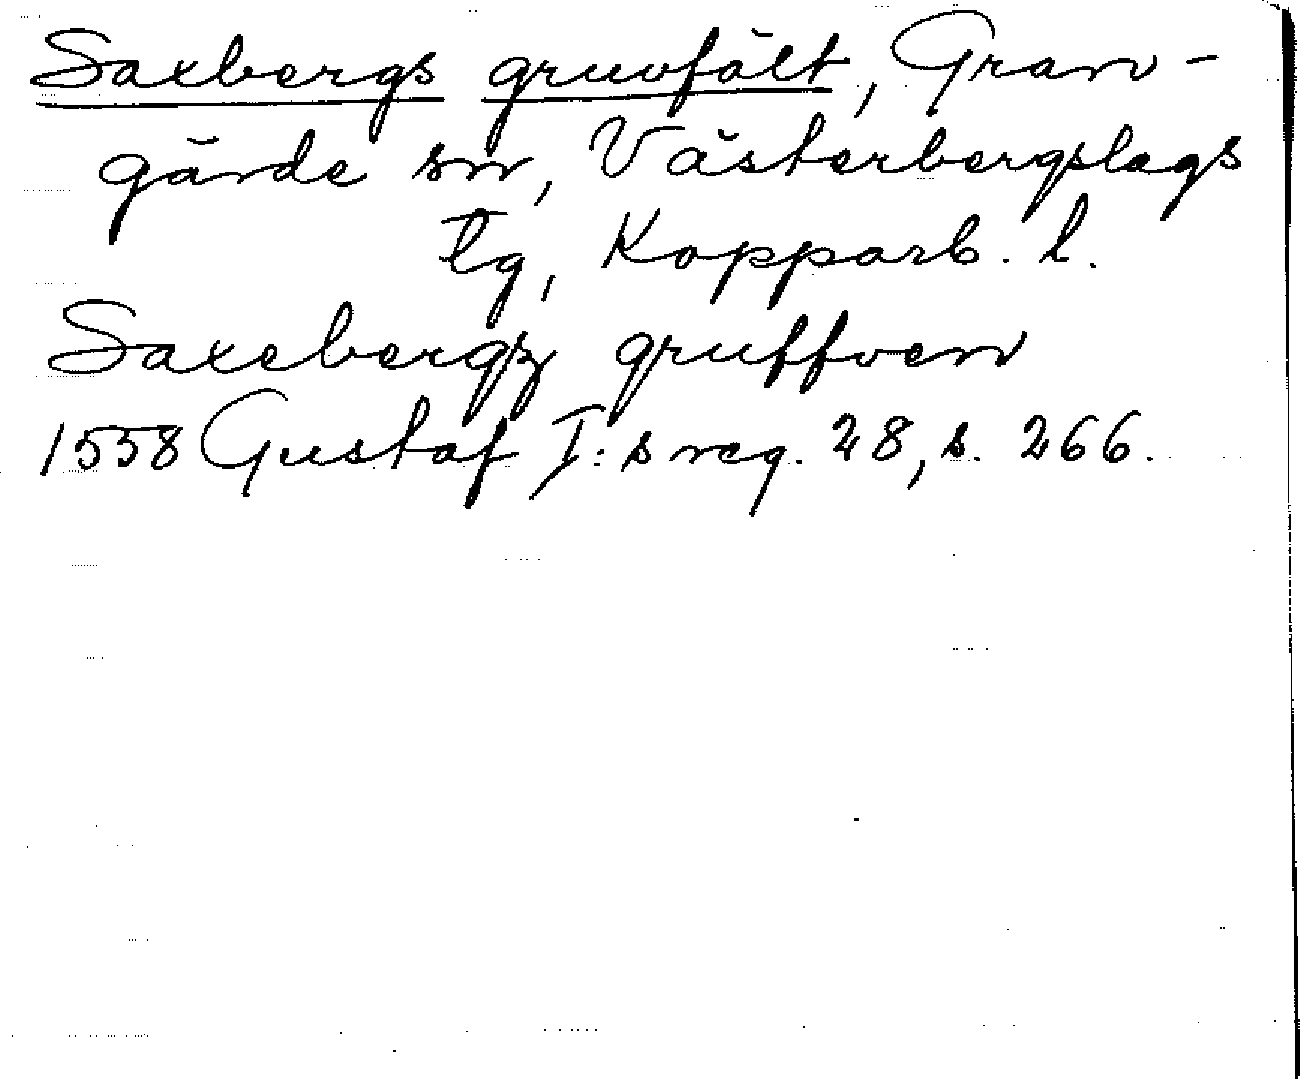 Saxbergs gruvfält, Gran-
gärde sn, Västerbergslags
tg, Kopparb. l.
Saxebergz gruffven
1558 Gustaf I:s reg. 28, s. 266.